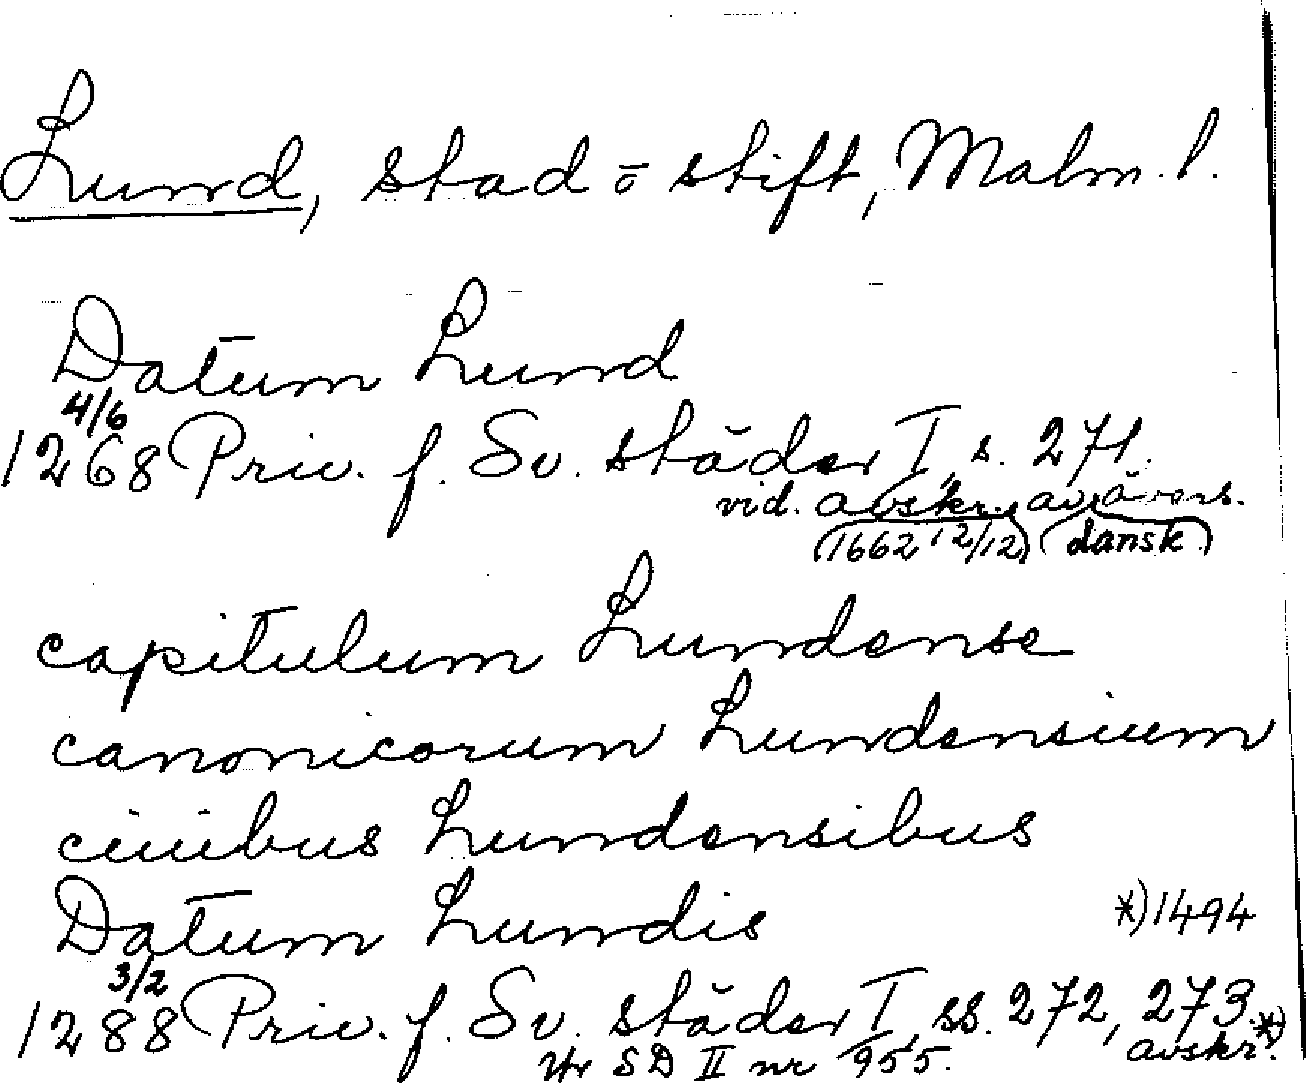 Lund, stad o stift, Malm. l.
Datum Lund
4/6
1268 Priv. f. Sv. städer I, s. 271.
vid. avskr. av övers.
(1662 12/12) (dansk)
capitulum Lundense
canonicorum Lundensium
ciuibus Lundensibus
Datum Lundis *) 1494
3/2
1288 Priv. f. Sv. städer I, ss. 272, 273. *)
Ur SD II nr 955. avskr.